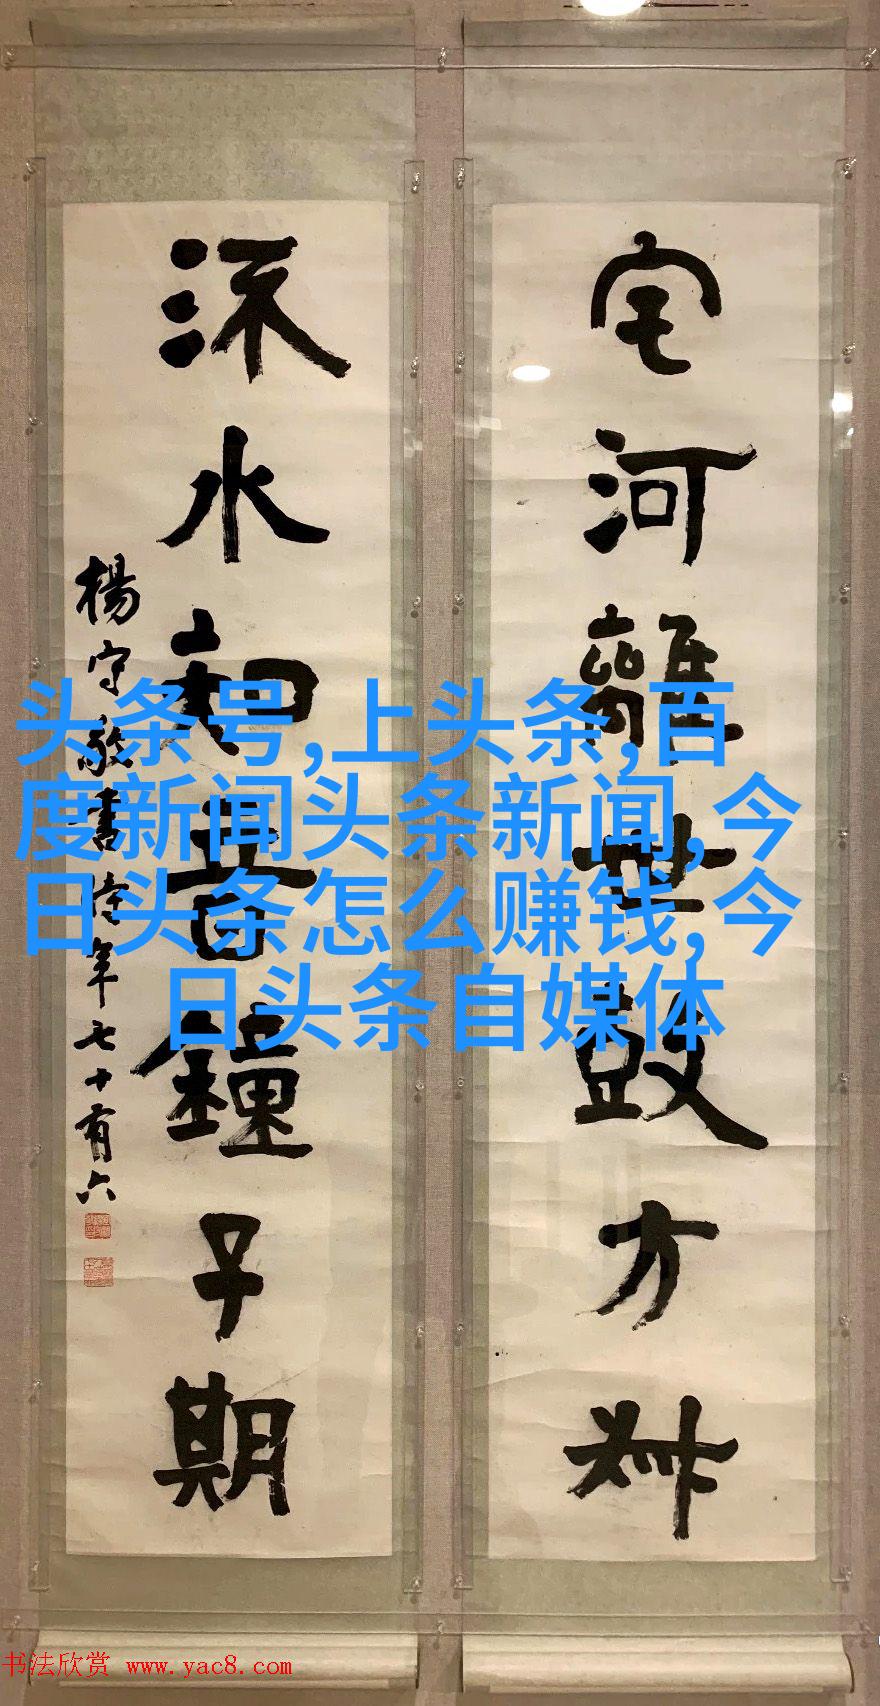 宅河離世鼓方叔
㳅水知音鐘子期
楊守敬書時年七十有六
头条号,上头条,百
度新闻头条新闻,今
日头条怎么赚钱,今
日头条自媒体
书法欣赏 www.yac8.com